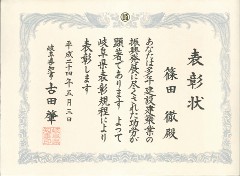 表彰状
篠田 徹 殿
あなたは多年建設業の
振興発展に尽くされた功労が
顕著であります よって
岐阜県表彰規程により
表彰します
平成二十四年五月二日
岐阜県知事 古田 肇